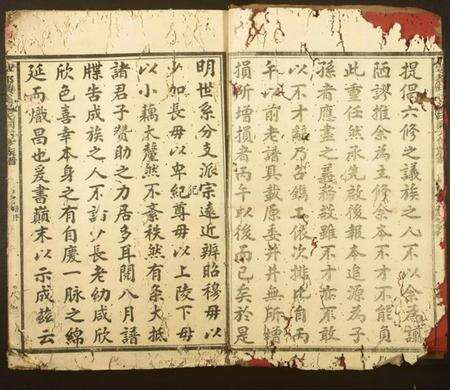 提倡六修之議族之人不以余爲譾
陋謬推余為主修余本不才不能負
此重任然承先啟後報本追源為子
孫者應盡之義務故雖不才亦不敢
以不才辭乃鐫工依次排比自丙
午以前老譜具載原委井井無所增
損所增損者丙午以後而已矣於是
明世系分支派宗遠近辨昭穆毋以
少加長毋以卑紀尊毋以上陵下毋
以小藕大釐然不紊秩然有条大抵
諸君子贊助之力居多耳閱八月譜
牒告成族之人不少長老幼咸欣
欣色喜幸本身之有自慶一脈之綿
延而熾昌也爰書巔末以示成茲云